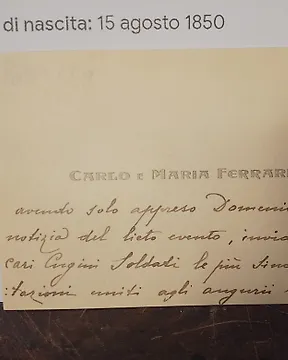 di nascita: 15 agosto 1850
CARLO E MARIA FERRARI
avendo solo appreso Domeni
notizia del lieto evento, invia
cari Cugini Soldati le più sinc
tazioni uniti agli augurii